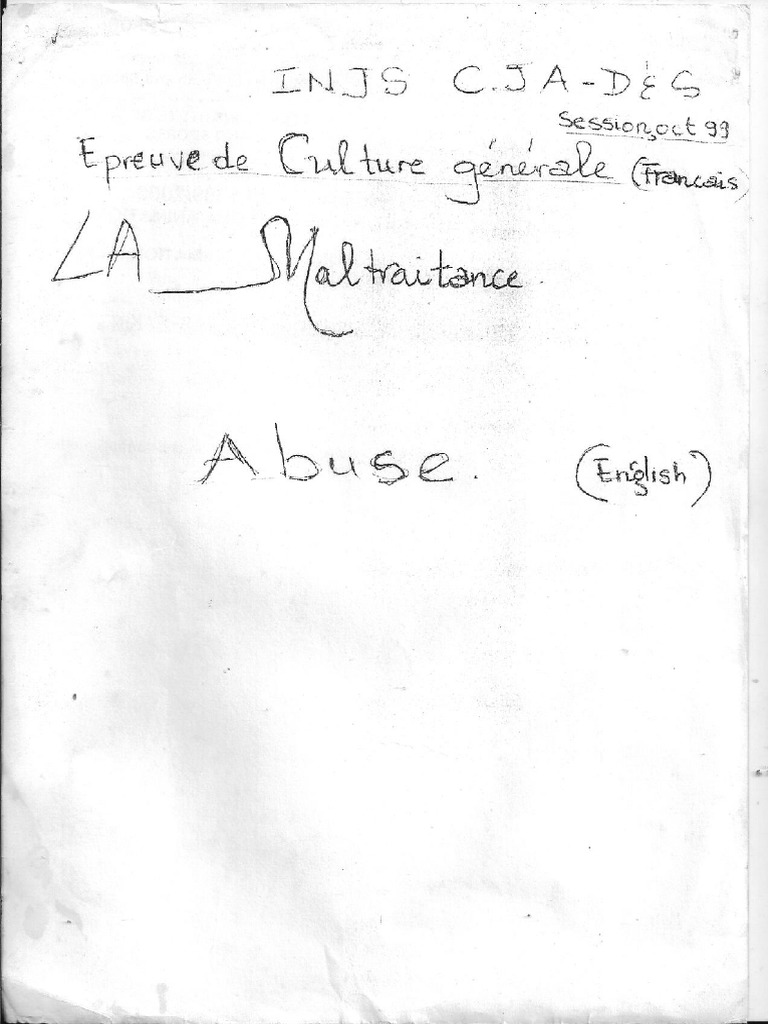 INJS C.JA-D&S
Session, oct 99
Epreuve de Culture générale (Francais)
LA Maltraitance
Abuse. (English)